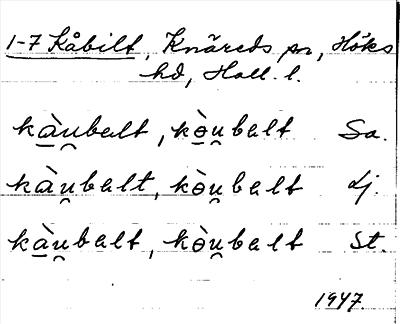 1-7 Kåbilt, Knäreds sn, Höks
hd, Hall. l.
kàu̯balt, kòu̯balt Sa.
kàu̯balt, kòu̯balt Lj.
kàu̯balt, kòu̯balt St.
1947.